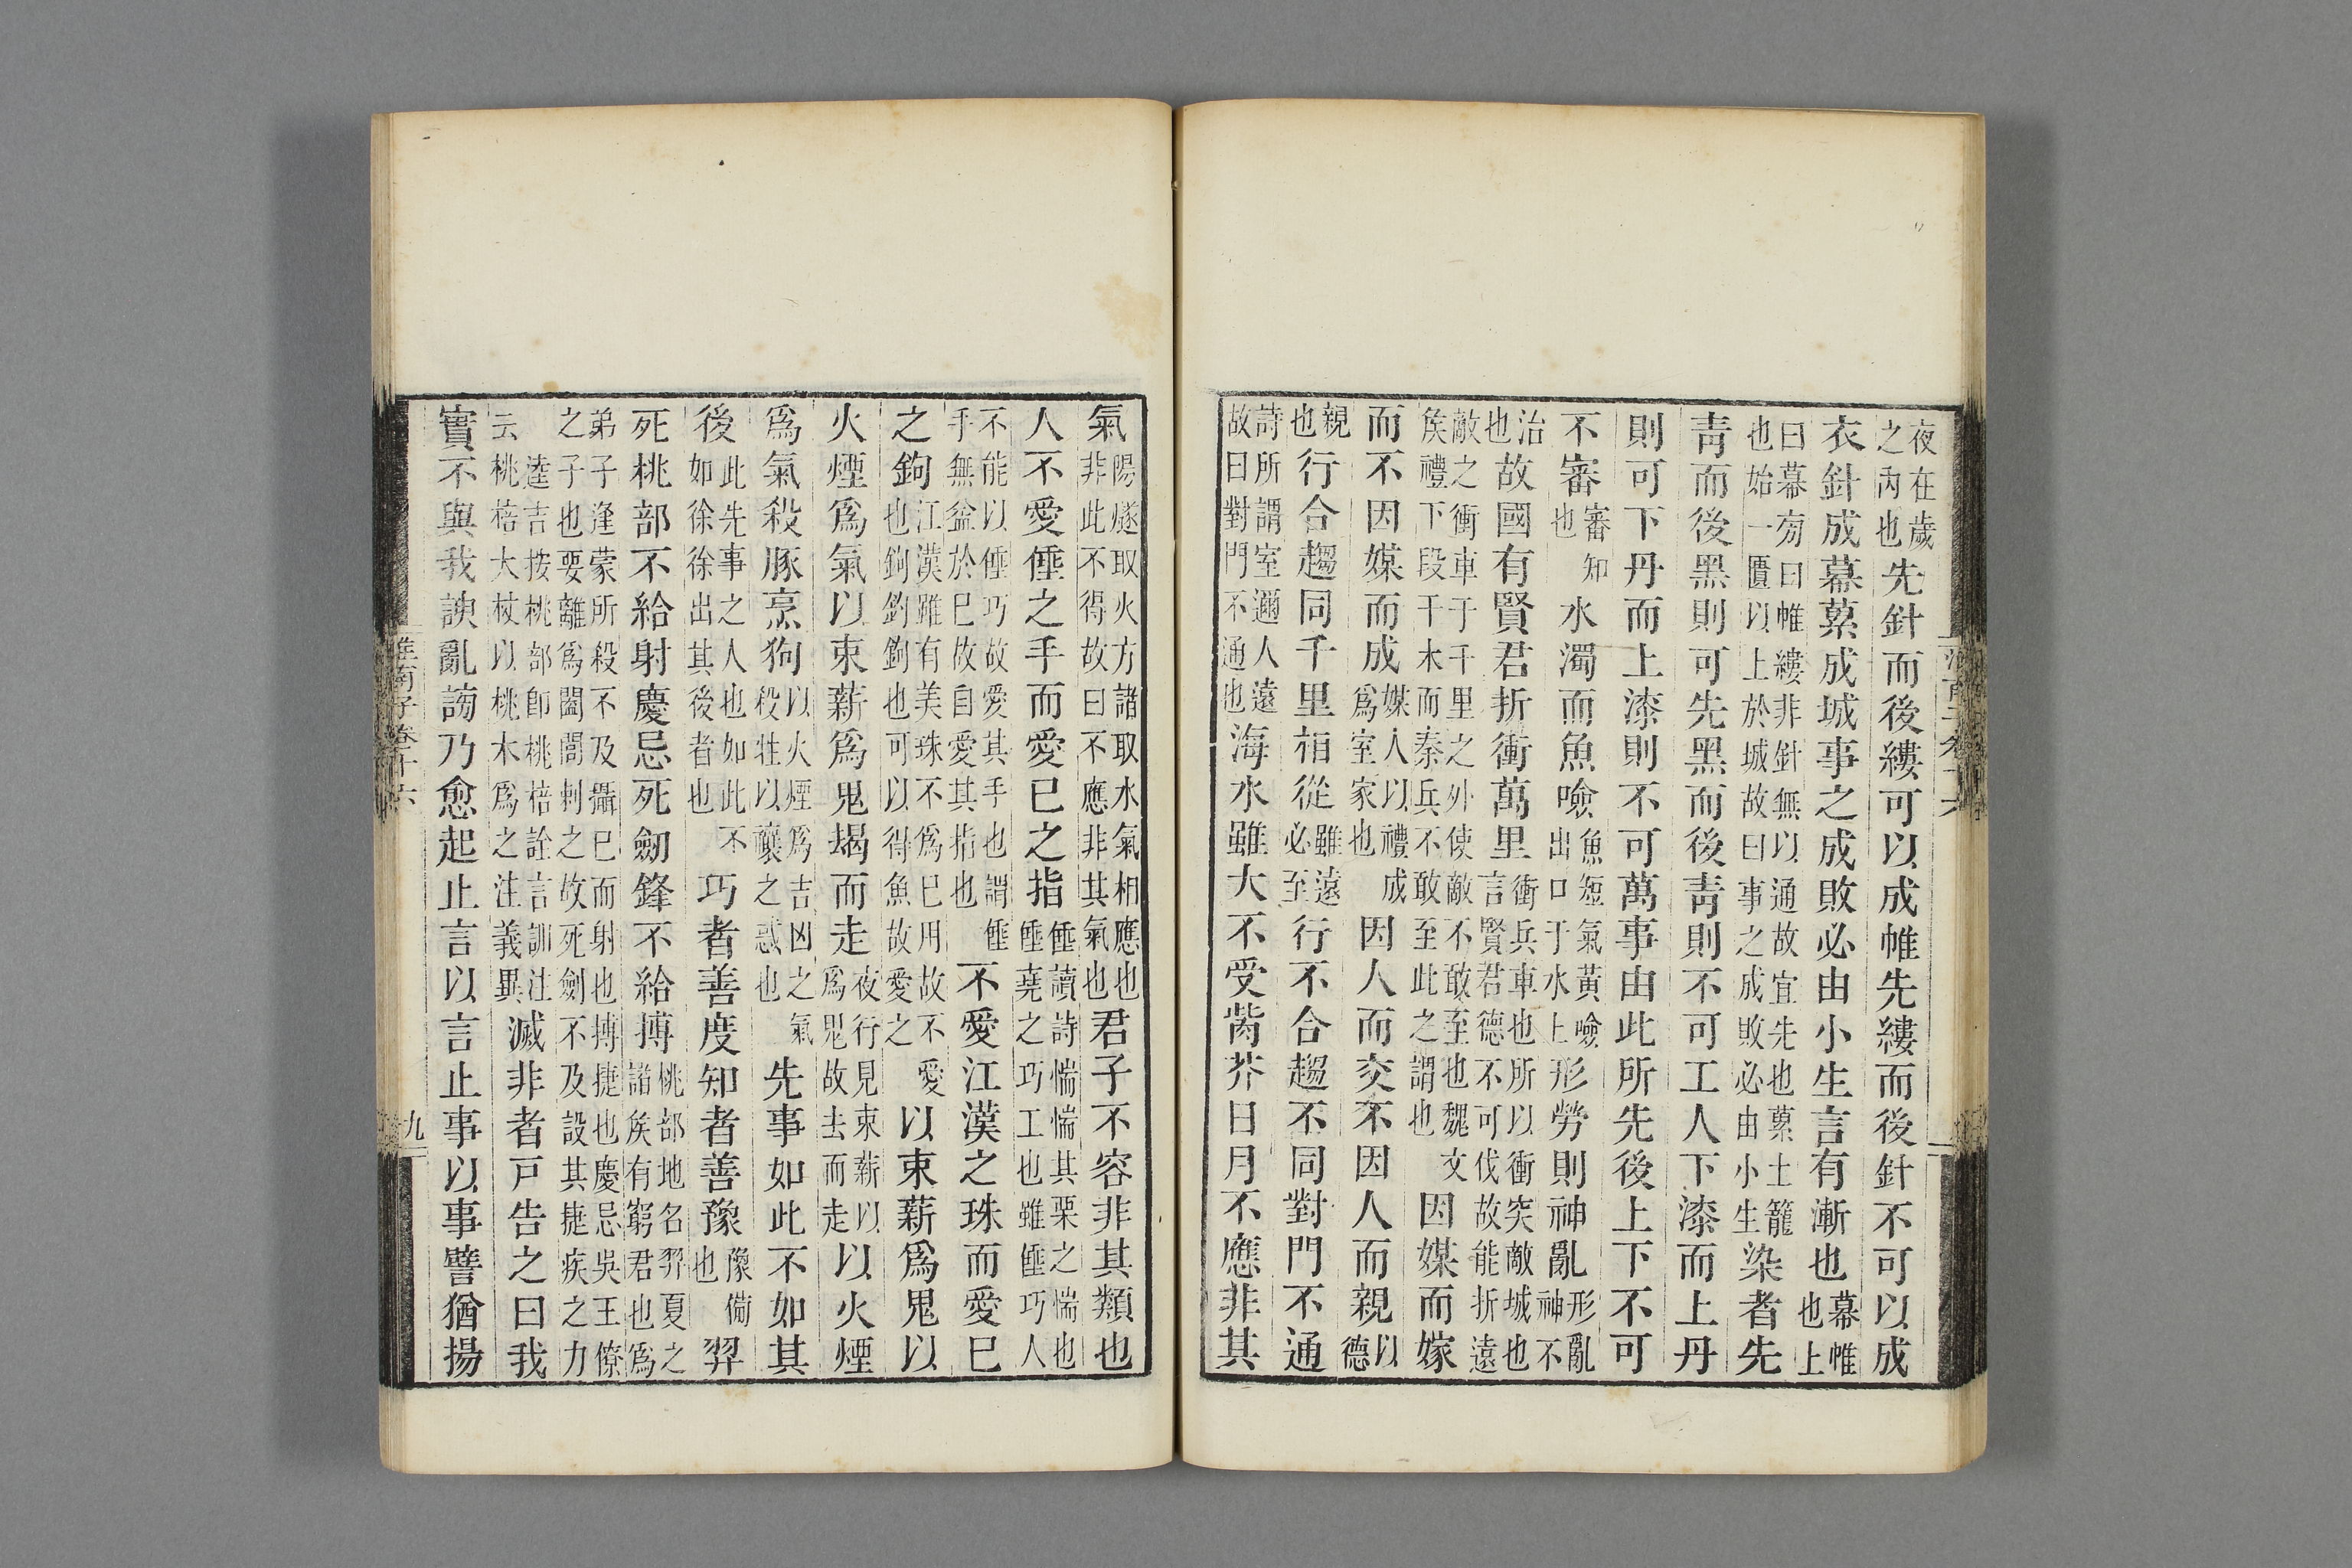 夜在歲之內也先針而後縷可以成帷先縷而後針不可以成
衣針成幕蔂成城事之成敗必由小生言有漸也幕帷也上
曰幕㫄曰帷縷非針無以通故宜先也蔂土籠也始一匱以上於城故曰事之成敗必由小生染者先
靑而後黑則可先黑而後靑則不可工人下漆而上丹
則可下丹而上漆則不可萬事由此所先後上下不可
不審審知也水濁而魚噞魚短氣黃噞出口于水上形勞則神亂形亂神不
治也故國有賢君折衝萬里衝兵車也所以衝突敵城也言賢君德不可伐故能折遠
敵之衝車于千里之外使敵不敢至也魏文矦禮下段干木而秦兵不敢至此之謂也因媒而嫁
而不因媒而成媒人以禮成爲室家也因人而交不因人而親以德
親也行合趨同千里相從雖遠必至行不合趨不同對門不通
詩所謂室邇人遠故曰對門不通也海水雖大不受胔芥日月不應非其
氣陽燧取火方諸取水氣相應也非此不得故曰不應非其氣也君子不容非其類也
人不愛倕之手而愛已之指倕讀詩惴惴其栗之惴也倕堯之巧工也雖倕巧人
不能以倕巧故愛其手也謂倕手無益於已故自愛其指也不愛江漢之珠而愛已
之鉤江漢雖有美珠不爲已用故不愛也鉤釣鉤也可以得魚故愛之以束薪爲鬼以
火煙爲氣以束薪爲鬼朅而走夜行見束薪以爲鬼故去而走以火煙
爲氣殺豚烹狗以火煙爲吉凶之氣殺牲以禳之惑也先事如此不如其
後此先事之人也如此不如徐徐出其後者也巧者善度知者善豫豫備也羿
死桃部不給射慶忌死劒鋒不給搏桃部地名羿夏之諸矦有窮君也爲
弟子逢蒙所殺不及攝已而射也搏捷也慶忌吳王僚之子也要離爲闔閭刺之故死劍不及設其捷疾之力
逵吉按桃部卽桃棓詮言訓注云桃棓大杖以桃木爲之注義異滅非者戸告之曰我
實不與我諛亂謗乃愈起止言以言止事以事譬猶揚
淮南子卷十六
九